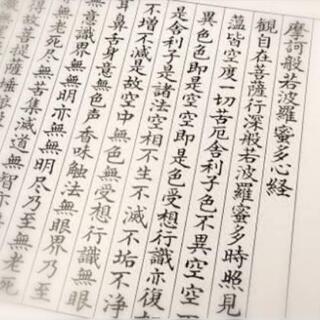 摩訶般若波羅蜜多心経
観自在菩薩行深般若波羅蜜多時照見
蘊皆空度一切苦厄舎利子色不異空空
異色色即是空空即是色受想行識亦復
是舎利子是諸法空相不生不滅不垢不浄
不増不減是故空中無色無受想行識無眼
耳鼻舌身意無色声香味触法無眼界乃至
無意識界無無明亦無無明尽乃至無老死
無老死尽無苦集滅道無智亦
得故菩提薩埵依般